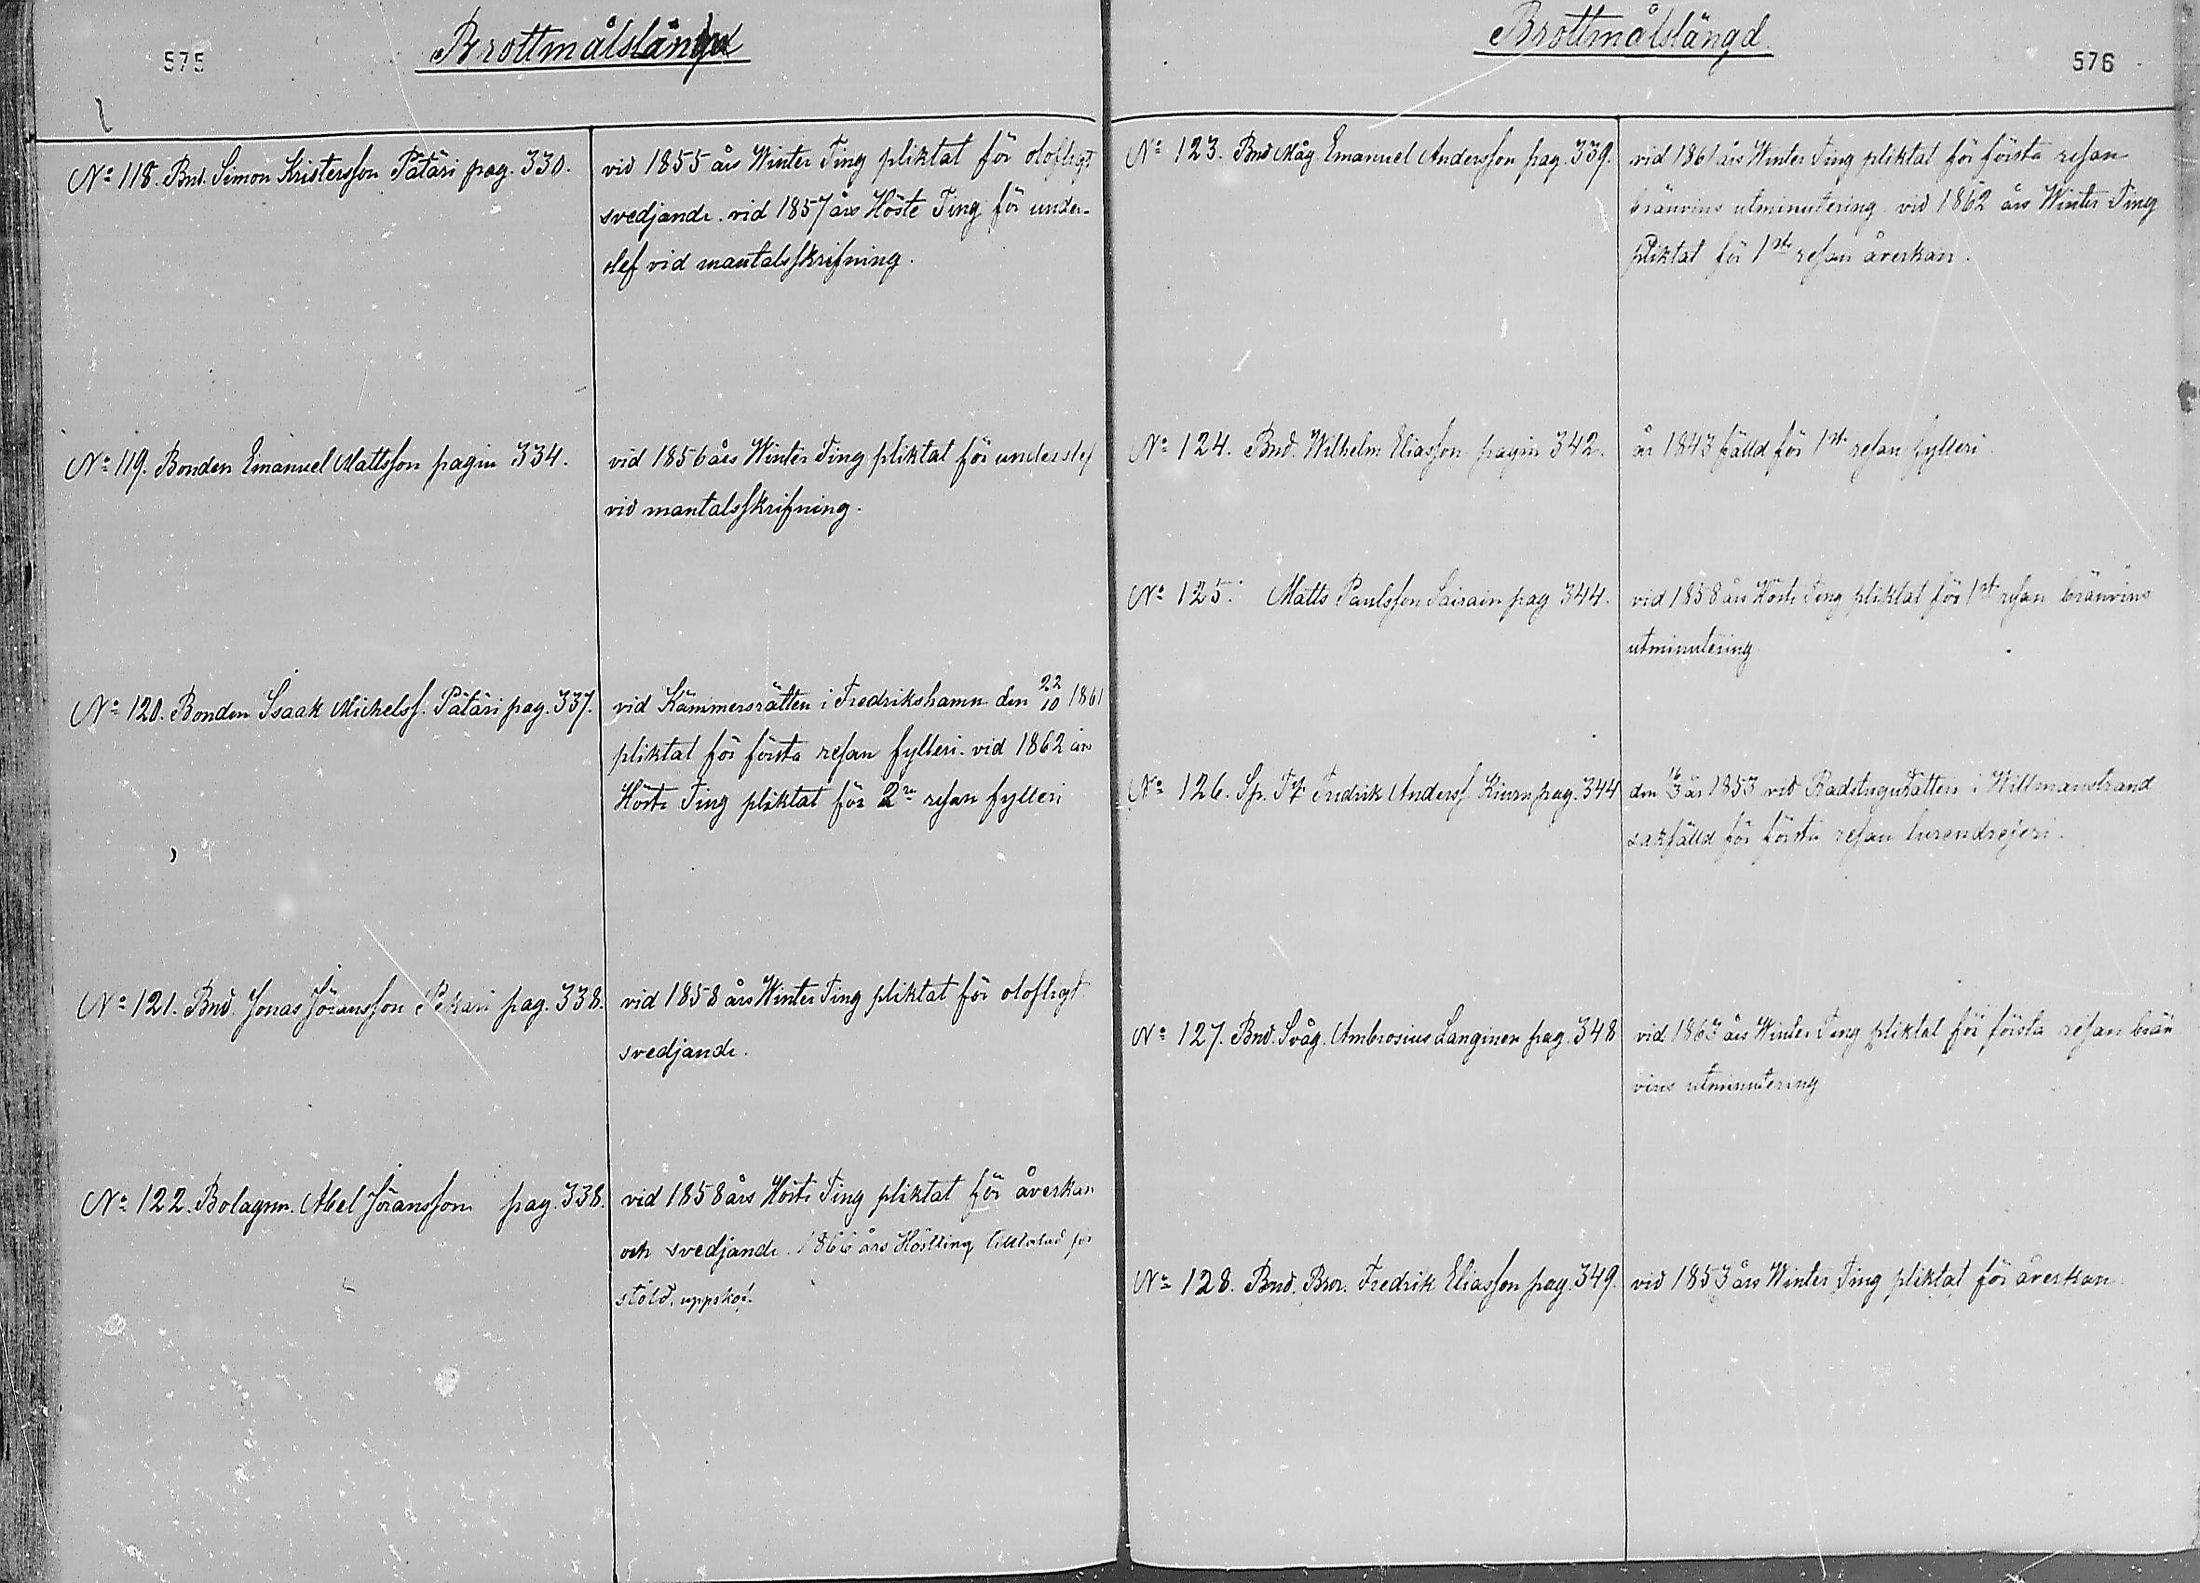 575
Brottmålslängd
N:o 118. Bnd. Simon Kristersson Pätäri pag. 330.
vid 1855 års Winter Ting pliktat för olofligt
svedjande. vid 1857 års Höste Ting för under-
slef vid mantalsskrifning.
N:o 119. Bonden Emanuel Mattsson pagin 334.
vid 1856 års Winter Ting pliktat för underslef
vid mantalsskrifning.
N:o 120. Bonden Isaak Michelss. Pätäri pag. 337.
vid Kämnersrätten i Fredrikshamn den 22/10 1861
pliktat för första resan fylleri. vid 1862 års
Höste Ting pliktat för 2re resan fylleri
N:o 121. Bnd. Jonas Jöransson Pekari pag. 338.
vid 1858 års Winter Ting pliktat för olofligt
svedjande.
N:o 122. Bolagsm. Abel Jöransson pag. 338.
vid 1858 års Höste Ting pliktat för åverkan
och svedjande. 1866 års Hösting tilltalad för
stöld, uppskof.
Brottmålslängd
576
N:o 123. Bnd Måg Emanuel Andersson pag. 339.
vid 1861 års Winter Ting pliktat för första resan
bränvins utminutering vid 1862 års Winter Ting
pliktat för 1sta resan åverkan.
N:o 124. Bnd. Wilhelm Eliasson pagin 342.
år 1843 fälld för 1sta resan fylleri.
N:o 125. Matts Paulsson Sairain pag 344.
vid 1858 års Höste Ting pliktat för 1sta resan bränvins
utminutering
N:o 126. Fredrik Anderss. pag. 344
den 16/3 år 1853 vid RådstuguRätten i Willmanstrand
sakfälld för första resan lurendrejeri.
N:o 127. Bnd. Svåg. Ambrosius Langinen pag. 348
vid 1863 års Winter Ting pliktat för första resan brän
vins utminutering
N:o 128. Bnd. Bror. Fredrik Eliasson pag. 349.
vid 1853 års Winter Ting pliktat för åverkan.